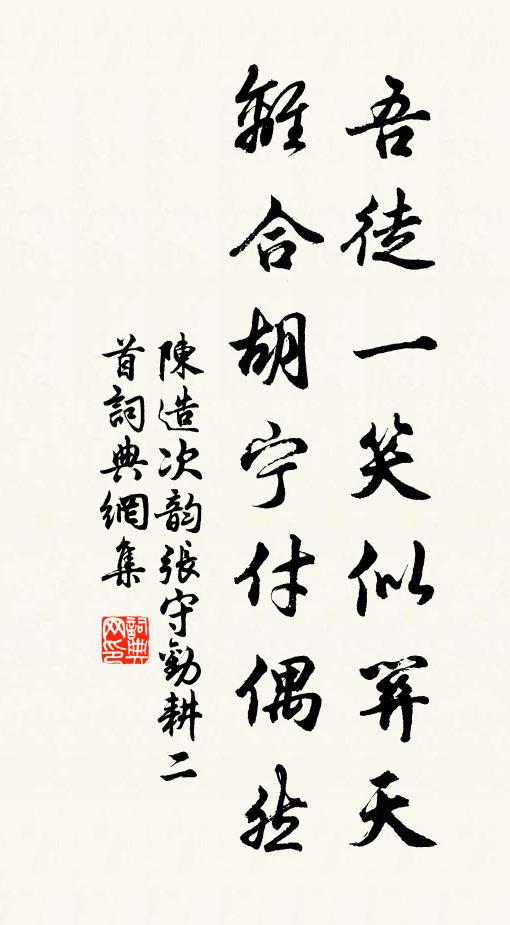 吾徒一笑似關天
離合胡宁付偶然
陳造次韵張守勸耕二
首詞典網集
詞典网印